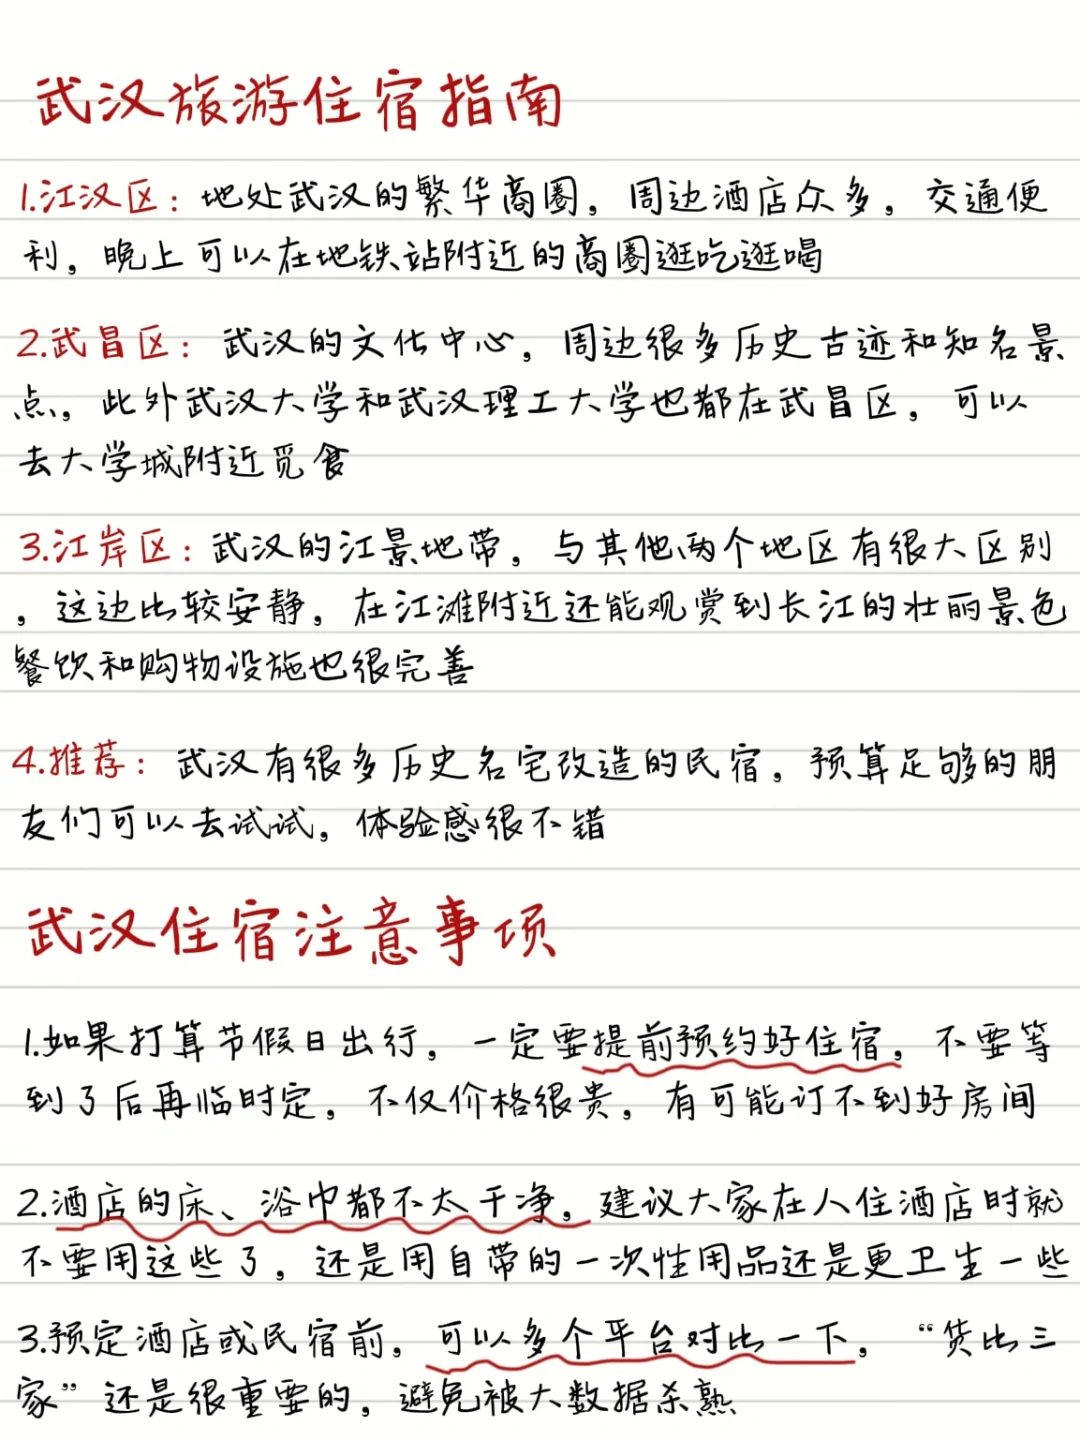 武汉旅游住宿指南
1.江汉区：地处武汉的繁华商圈，周边酒店众多，交通便
利，晚上可以在地铁站附近的商圈逛吃逛喝
2.武昌区：武汉的文化中心，周边很多历史古迹和知名景
点，此外武汉大学和武汉理工大学也都在武昌区，可以
去大学城附近觅食
3.江岸区：武汉的江景地带，与其他两个地区有很大区别
，这边比较安静，在江滩附近还能观赏到长江的壮丽景色
餐饮和购物设施也很完善
4.推荐：武汉有很多历史名宅改造的民宿，预算足够的朋
友们可以去试试，体验感很不错
武汉住宿注意事项
1.如果打算节假日出行，一定要提前预约好住宿，不要等
到了后再临时定，不仅价格很贵，有可能订不到好房间
2.酒店的床、浴巾都不太干净，建议大家在人住酒店时就
不要用这些了，还是用自带的一次性用品还是更卫生一些
3.预定酒店或民宿前，可以多个平台对比一下，“货比三
家”还是很重要的，避免被大数据杀熟